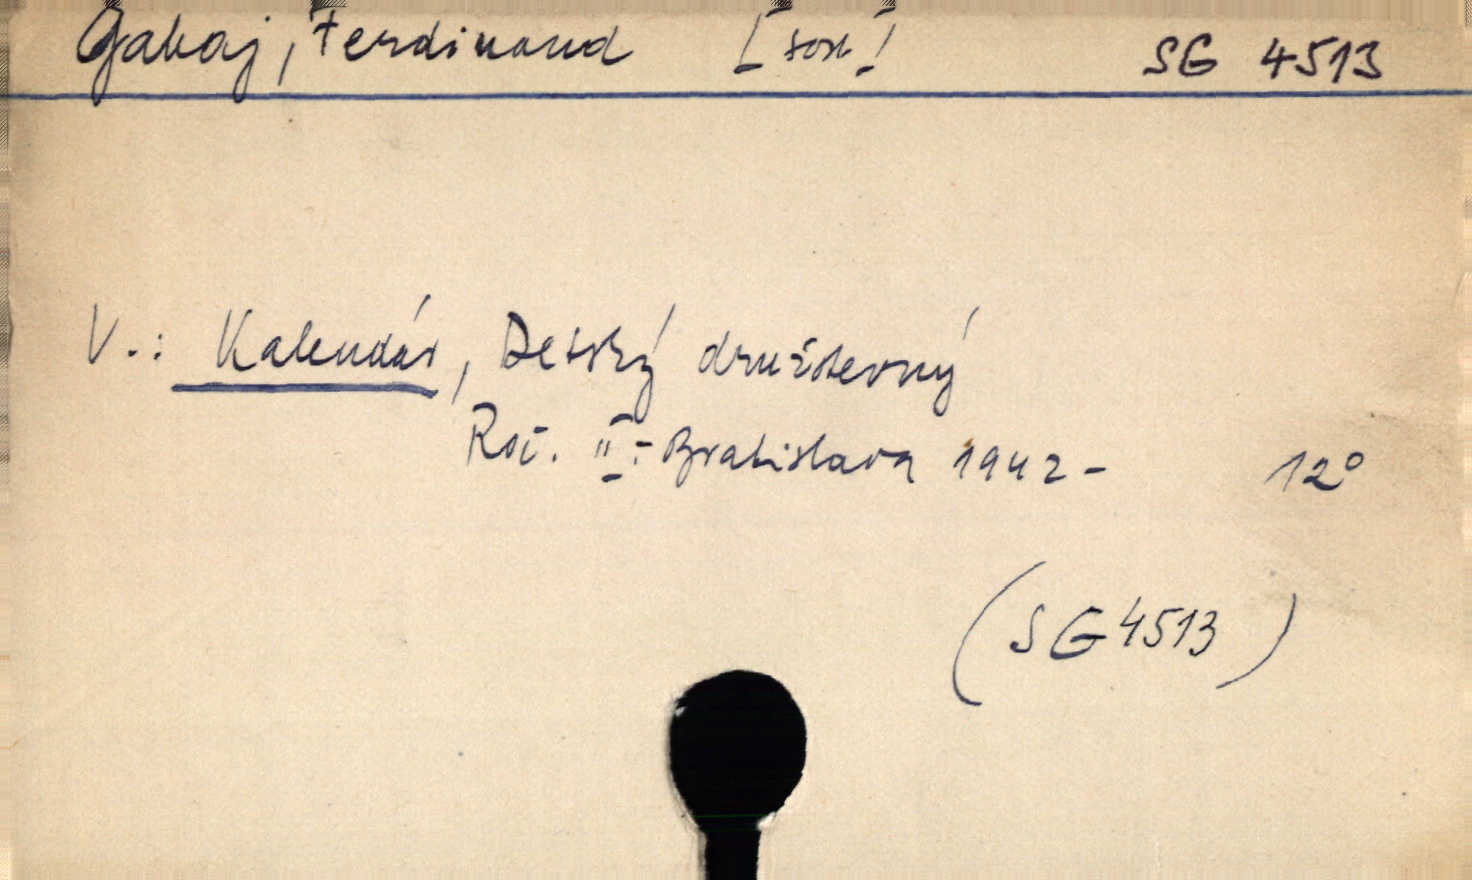 Gabaj, Ferdinand [sost.] SG 4513
V.: Kalendár, Detský družstevný
Roč. II: Bratislava 1942- 12°
(SG 4513)